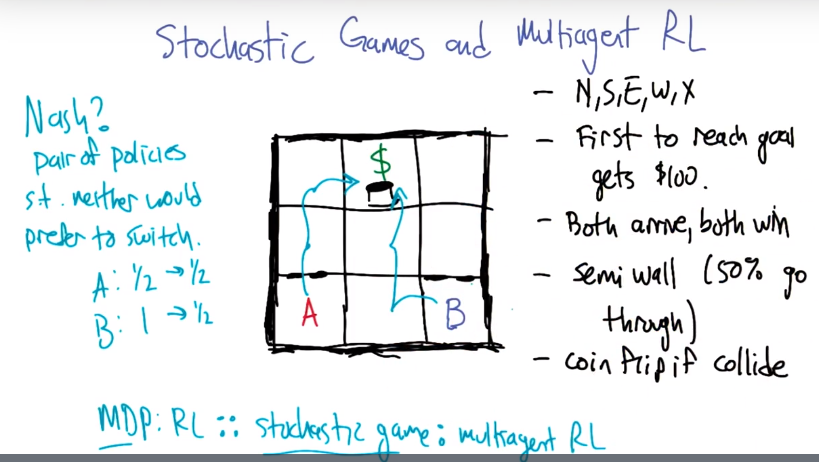 Stochastic Games and Multiagent RL
Nash?
pair of policies
s.t. neither would
prefer to switch.
A: 1/2 → 1/2
B: 1 → 1/2
$
A
B
- N,S,E,W,X
- First to reach goal
gets $100.
- Both arrive, both win
- Semi wall (50% go
through)
- coin flip if collide
MDP: RL :: stochastic game: multiagent RL